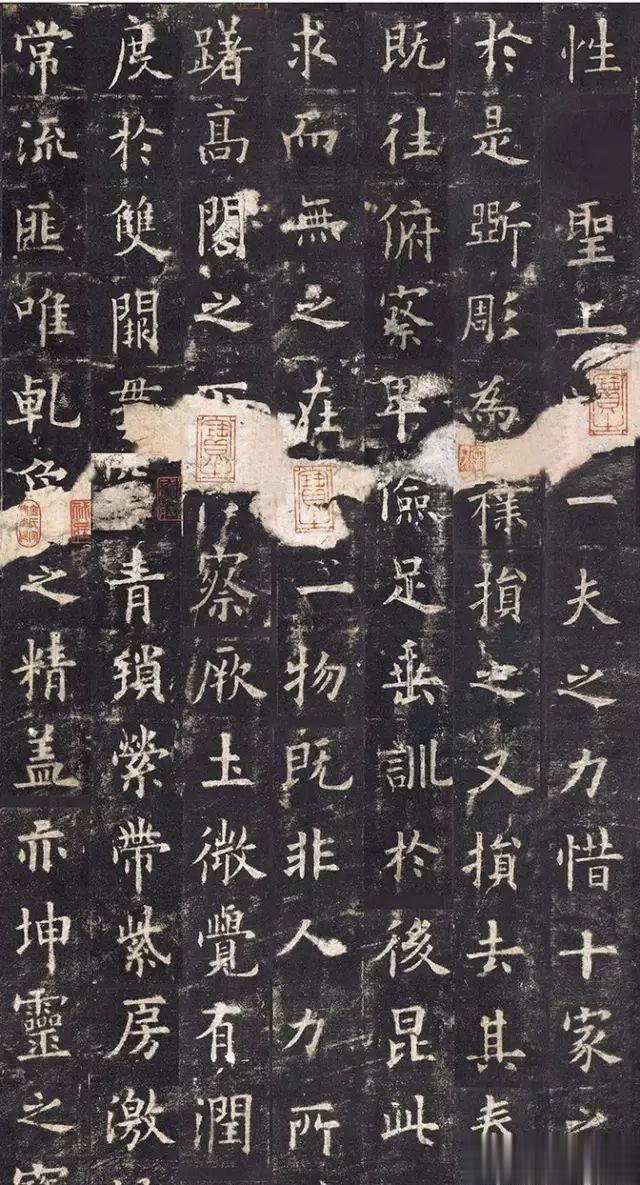 性聖上一夫之力惜十家之
於是斲彫為樸損之又損去其
既往俯察卑儉足垂訓於後昆此
求而無之在一物既非人力所
躇高閣之察厥土微覺有潤
度於雙闕青瑣縈帶紫房激
常流匪唯乾之精蓋亦坤靈之